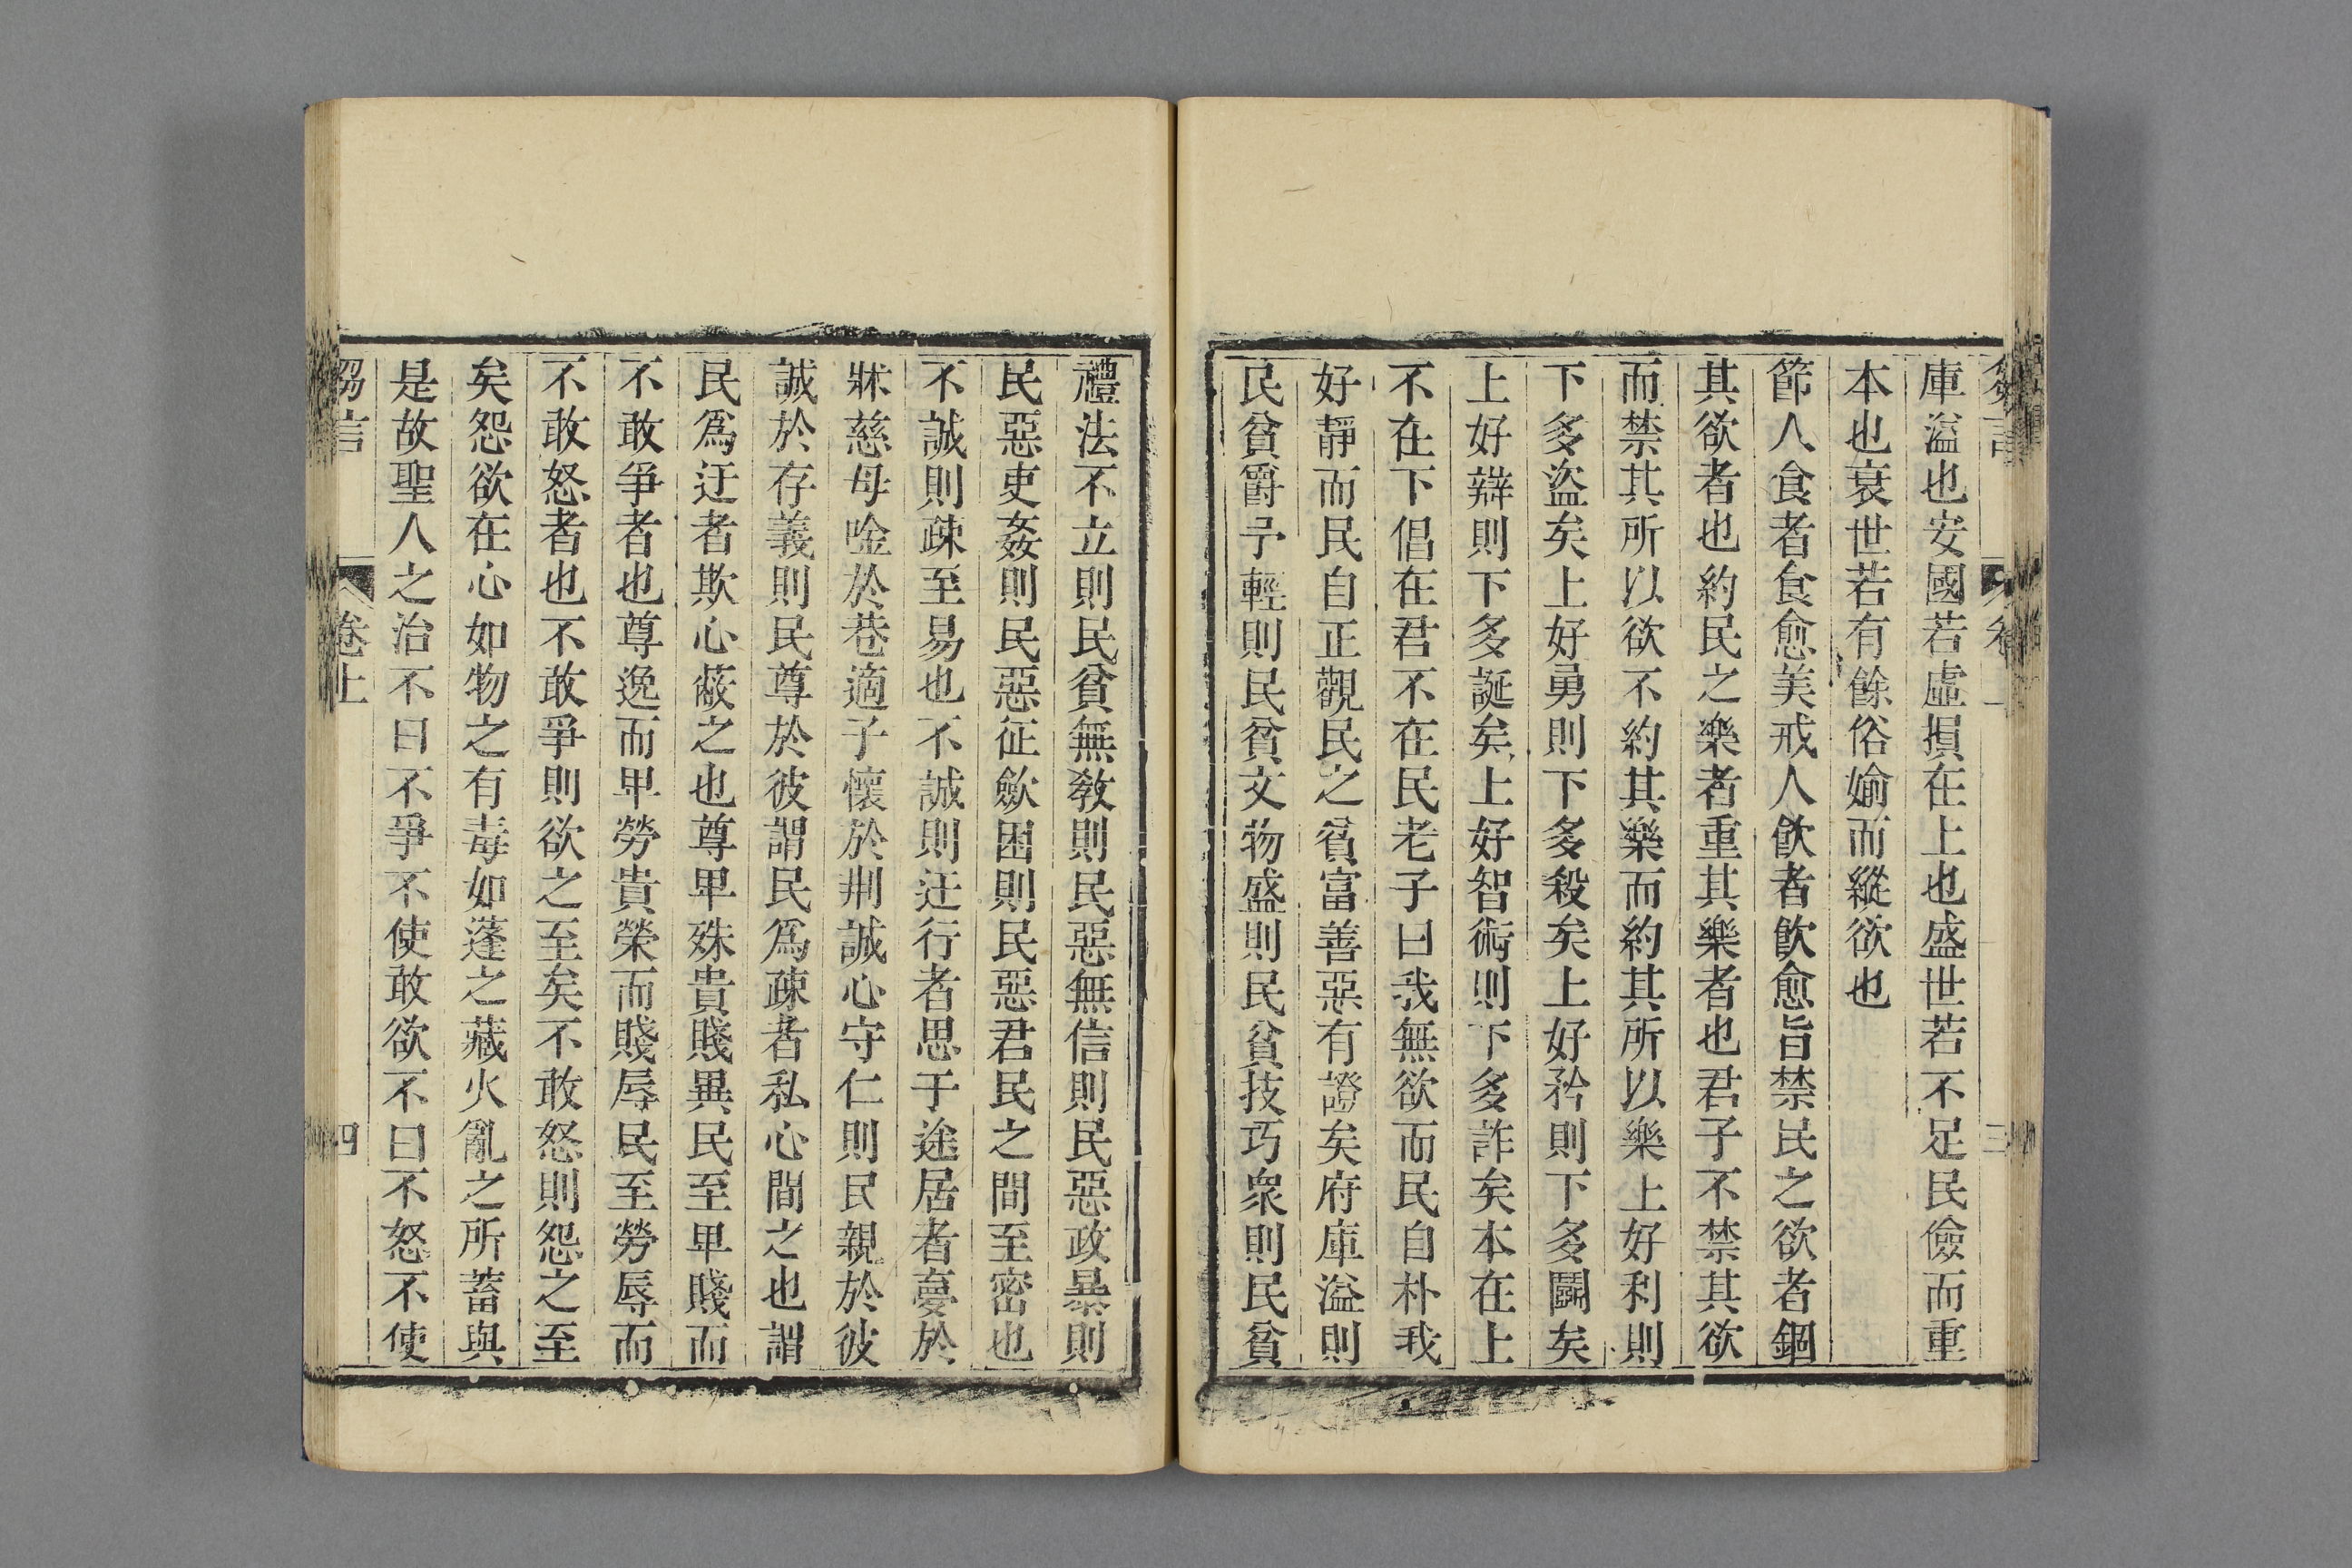 芻言 卷上 三
庫溢也安國若虛損在上也盛世若不足民儉而重
本也衰世若有餘俗媮而縱欲也
節人食者食愈美戒人飲者飲愈旨禁民之欲者錮
其欲者也約民之樂者重其樂者也君子不禁其欲
而禁其所以欲不約其樂而約其所以樂上好利則
下多盜矣上好勇則下多殺矣上好矜則下多鬭矣
上好辯則下多誕矣上好智術則下多詐矣本在上
不在下倡在君不在民老子曰我無欲而民自朴我
好靜而民自正觀民之貧富善惡有證矣府庫溢則
民貧爵予輕則民貧文物盛則民貧技巧衆則民貧
禮法不立則民貧無敎則民惡無信則民惡政暴則
民惡吏姦則民惡征歛困則民惡君民之間至密也
不誠則疎至易也不誠則迂行者思于途居者憂於
牀慈母唫於巷適子懷於荆誠心守仁則民親於彼
誠於存義則民尊於彼謂民爲疎者私心間之也謂
民爲迂者欺心蔽之也尊卑殊貴賤異民至卑賤而
不敢爭者也尊逸而卑勞貴榮而賤辱民至勞辱而
不敢怒者也不敢爭則欲之至矣不敢怒則怨之至
矣怨欲在心如物之有毒如蓬之藏火亂之所蓄與
是故聖人之治不曰不爭不使敢欲不曰不怒不使
芻言 卷上 四